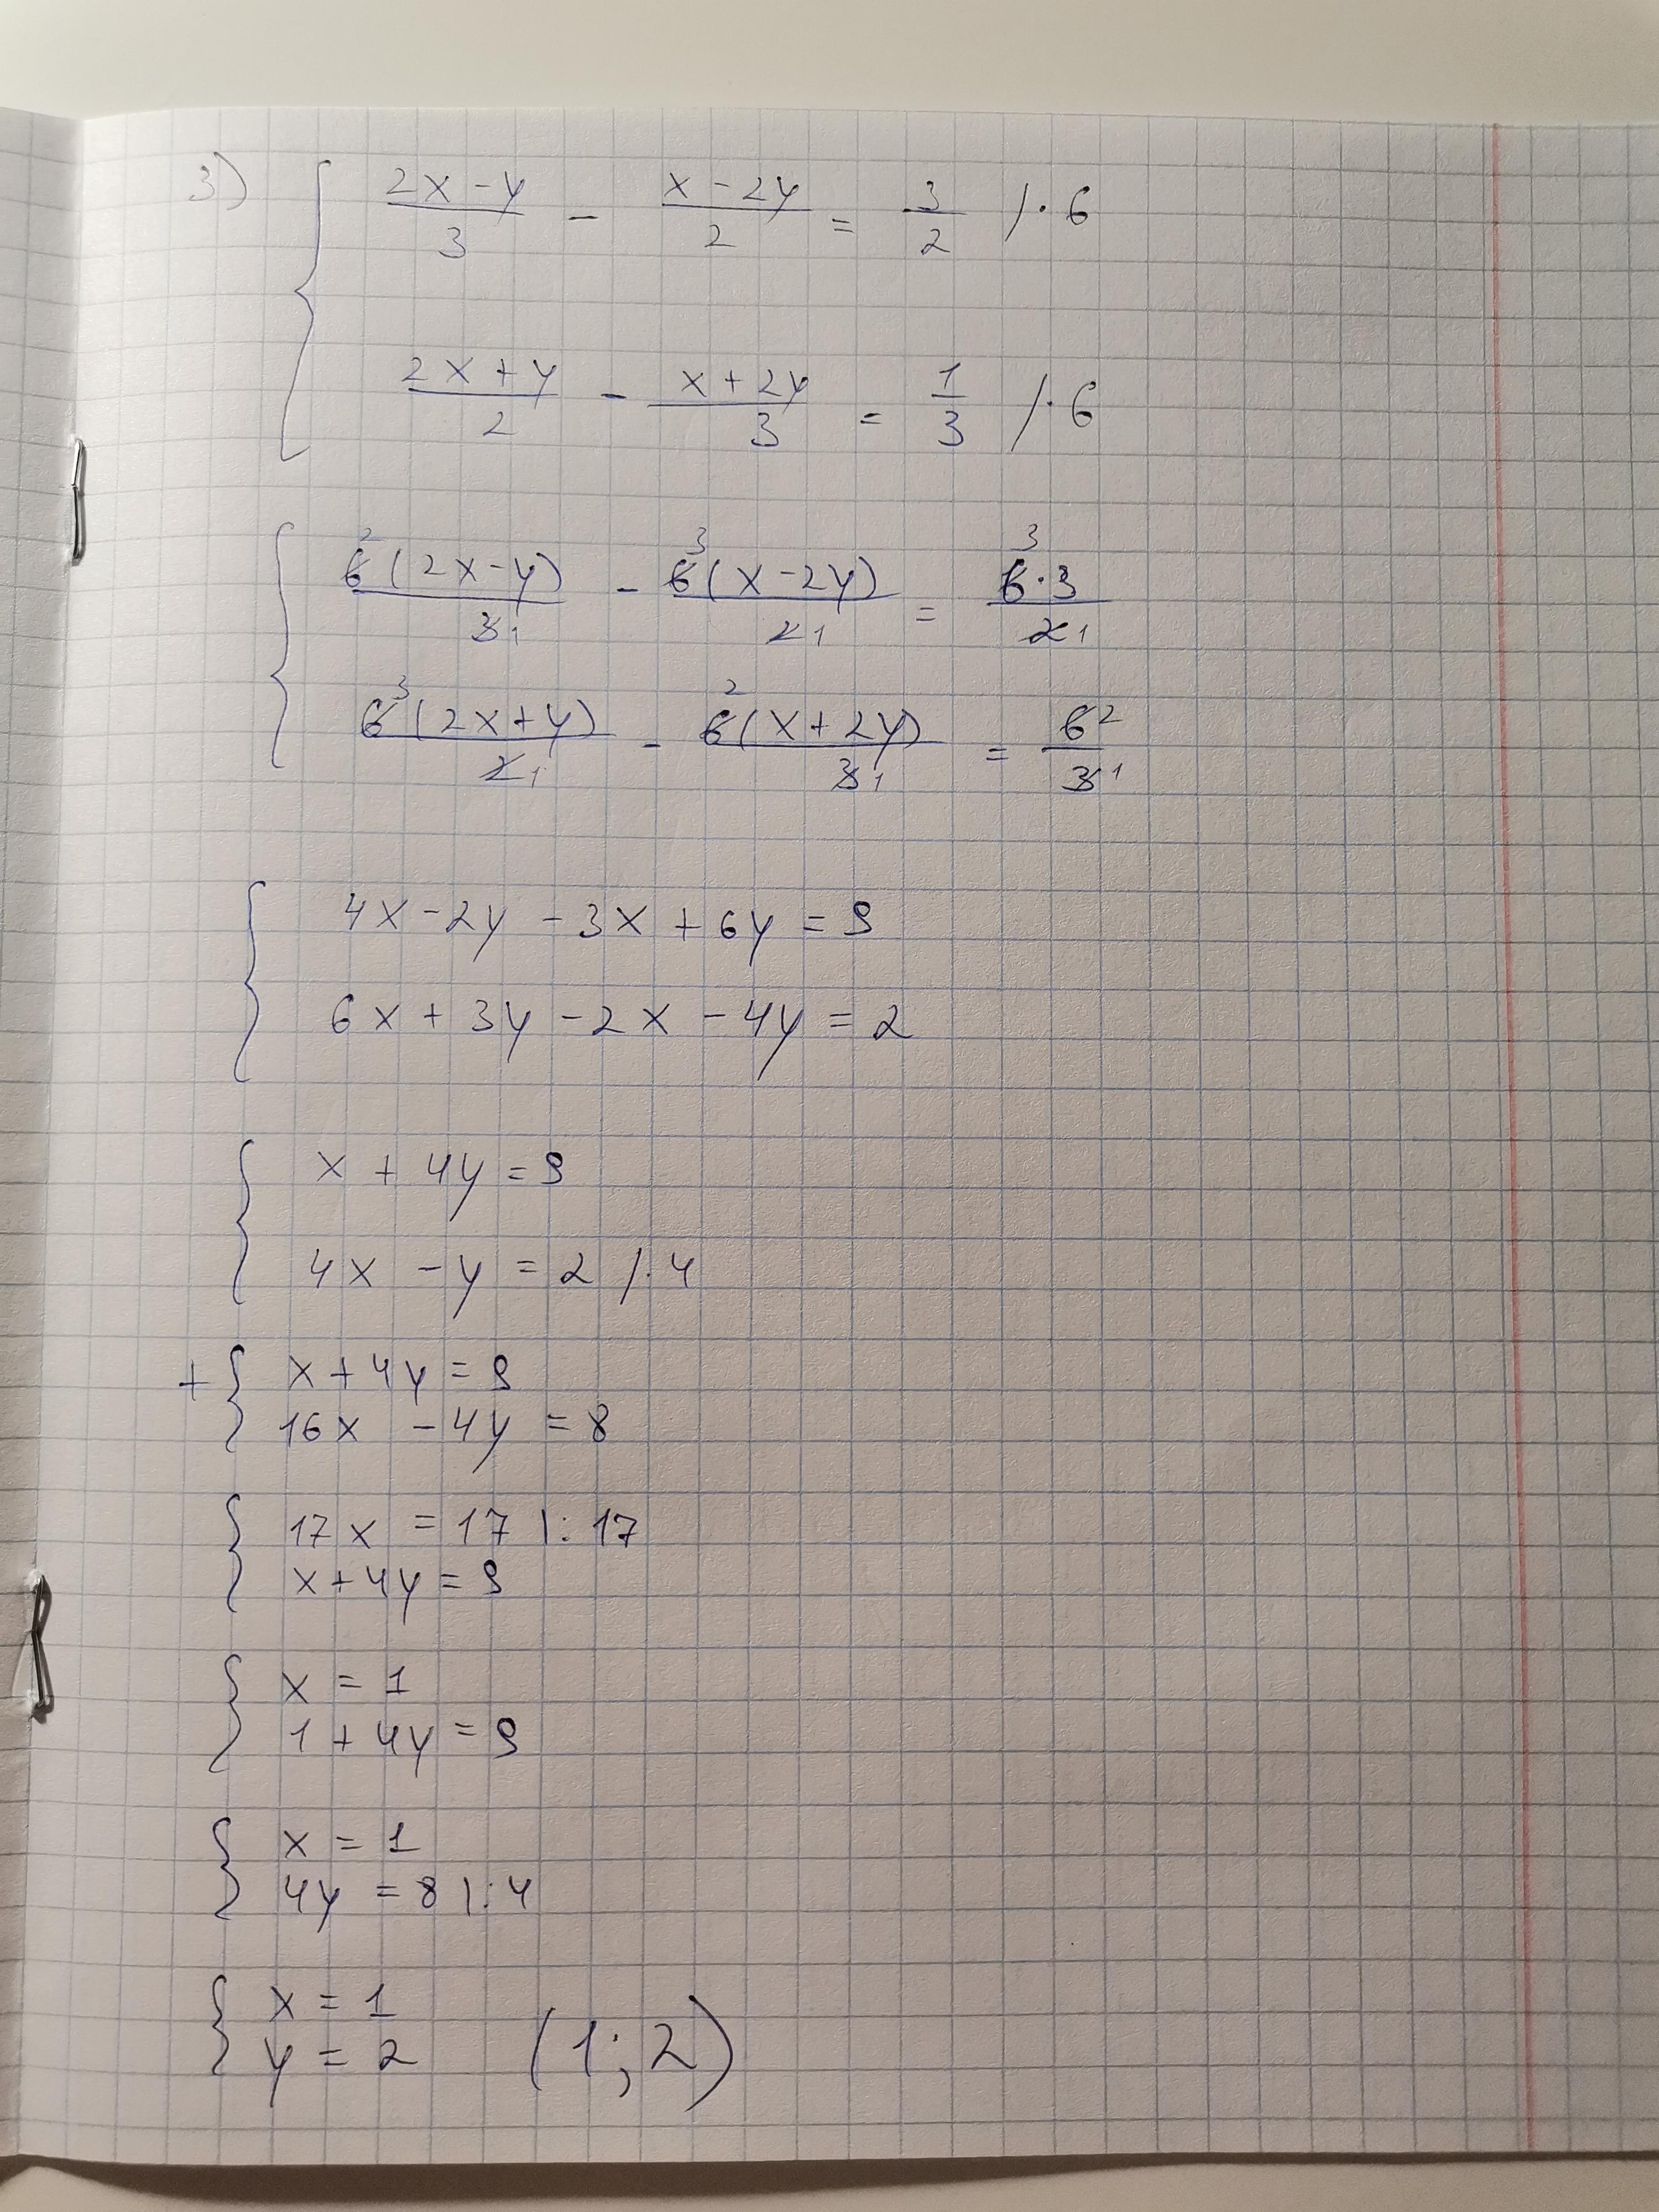 3) { (2x-y)/3 - (x-2y)/2 = 3/2 /·6
(2x+y)/2 - (x+2y)/3 = 1/3 /·6
{ 6²(2x-y)/3₁ - 6³(x-2y)/2₁ = 6³·3/2₁
6³(2x+y)/2₁ - 6²(x+2y)/3₁ = 6²/3¹
{ 4x-2y-3x+6y=9
6x+3y-2x-4y=2
{ x+4y=9
4x-y=2 /·4
+{ x+4y=9
16x-4y=8
{ 17x=17 |:17
x+4y=9
{ x=1
1+4y=9
{ x=1
4y=8 |:4
{ x=1
y=2 (1;2)